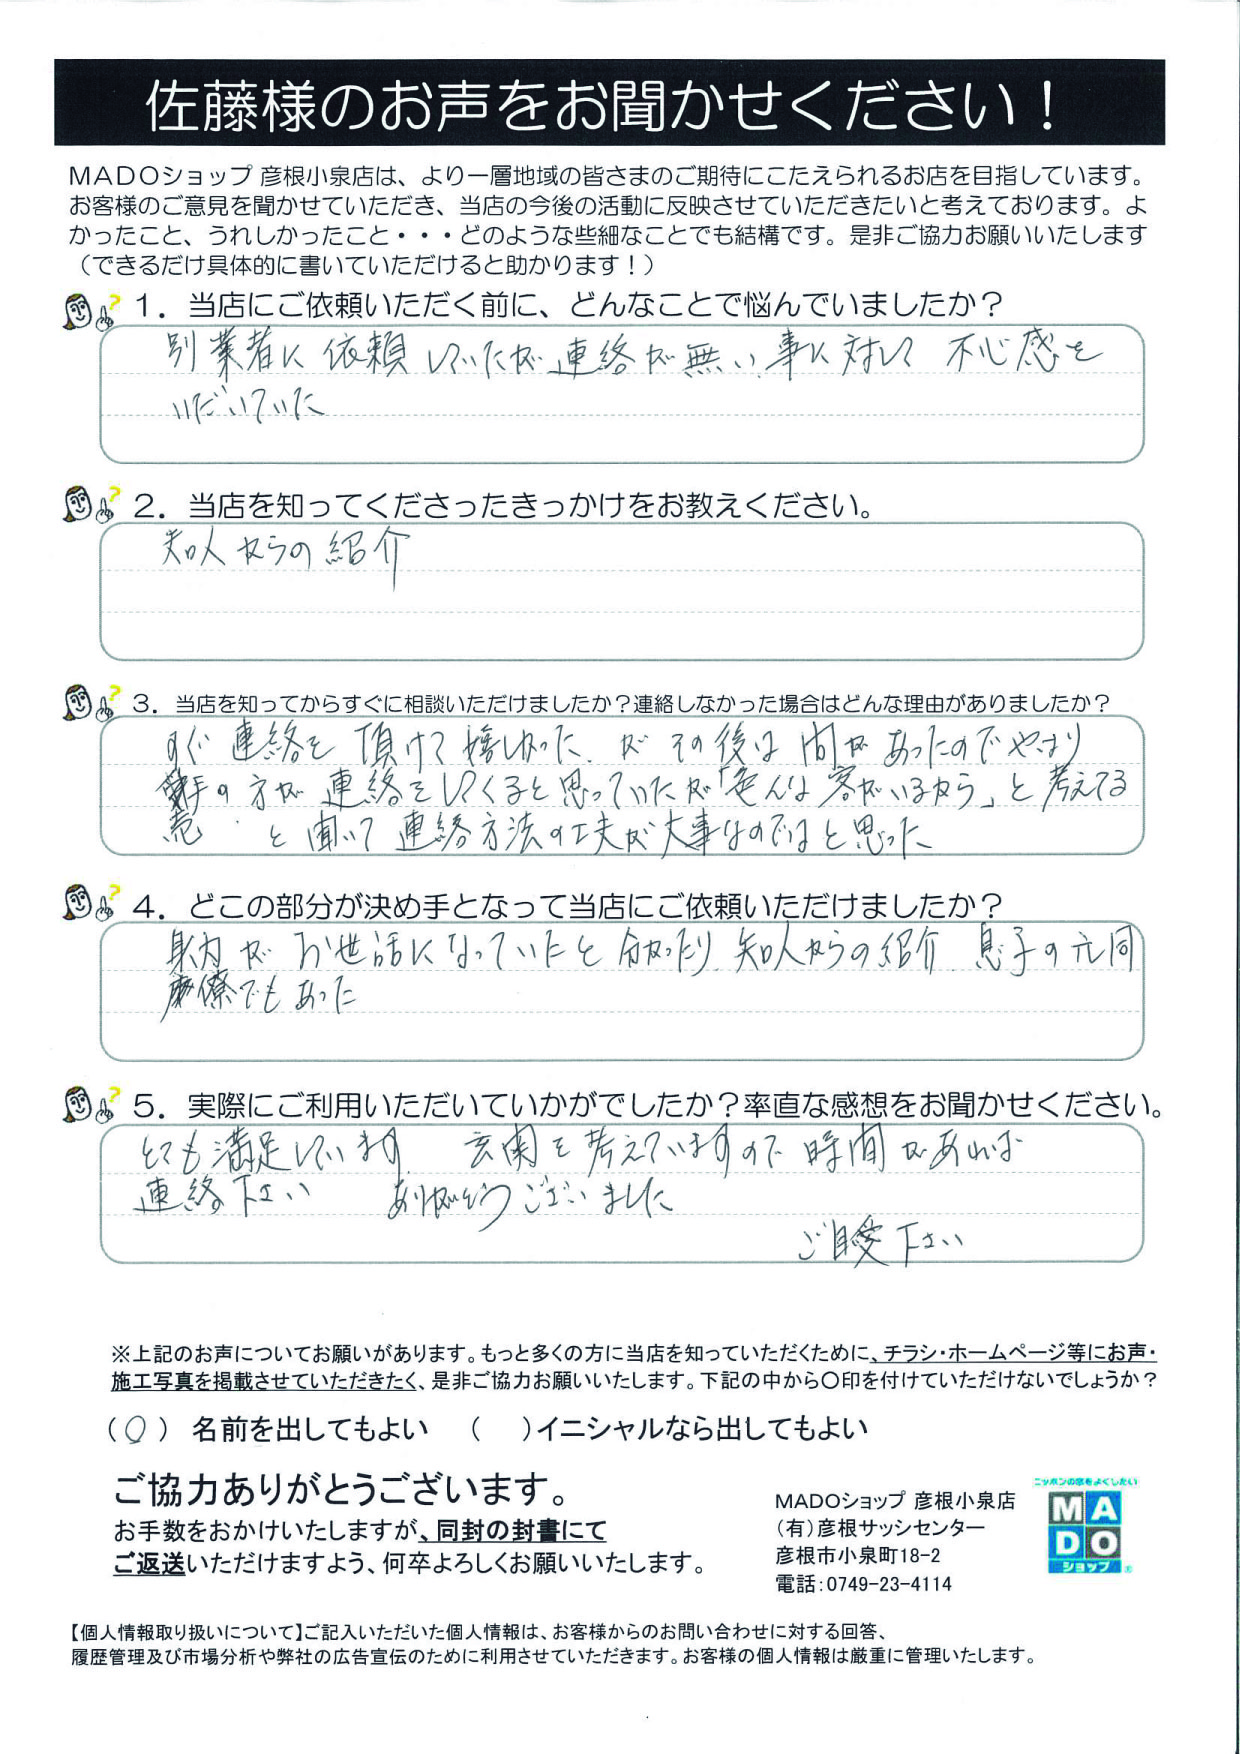 佐藤様のお声をお聞かせください！
MADOショップ 彦根小泉店は、より一層地域の皆さまのご期待にこたえられるお店を目指しています。
お客様のご意見を聞かせていただき、当店の今後の活動に反映させていただきたいと考えております。よ
かったこと、うれしかったこと・・・どのような些細なことでも結構です。是非ご協力お願いいたします
（できるだけ具体的に書いていただけると助かります！）
1．当店にご依頼いただく前に、どんなことで悩んでいましたか？
別業者に依頼していたが連絡が無い事に対して 不心感を
いだいていた
2．当店を知ってくださったきっかけをお教えください。
知人からの紹介
3．当店を知ってからすぐに相談いただけましたか？連絡しなかった場合はどんな理由がありましたか？
すぐ連絡を頂けて嬉しかった、が その後は間があったのでやはり
手の方が 連絡をしてくると思っていたが「色んな客がいるから」と考えてる
売 と聞いて連絡方法の工夫が大事なのではと思った
4．どこの部分が決め手となって当店にご依頼いただけましたか？
身内が お世話になっていたと 分かったり 知人からの紹介 息子の元同
僚でもあった
5．実際にご利用いただいていかがでしたか？率直な感想をお聞かせください。
とても満足しています 玄関を考えていますので 時間があれば
連絡下さい ありがとうございました
ご自愛下さい
※上記のお声についてお願いがあります。もっと多くの方に当店を知っていただくために、チラシ・ホームページ等にお声・
施工写真を掲載させていただきたく、是非ご協力お願いいたします。下記の中から〇印を付けていただけないでしょうか？
（〇） 名前を出してもよい （ ）イニシャルなら出してもよい
ご協力ありがとうございます。
お手数をおかけいたしますが、同封の封書にて
ご返送いただけますよう、何卒よろしくお願いいたします。
MADOショップ 彦根小泉店
（有）彦根サッシセンター
彦根市小泉町18-2
電話：0749-23-4114
ニッポンの窓をよくしたい
MA
DO
ショップ
【個人情報取り扱いについて】ご記入いただいた個人情報は、お客様からのお問い合わせに対する回答、
履歴管理及び市場分析や弊社の広告宣伝のために利用させていただきます。お客様の個人情報は厳重に管理いたします。